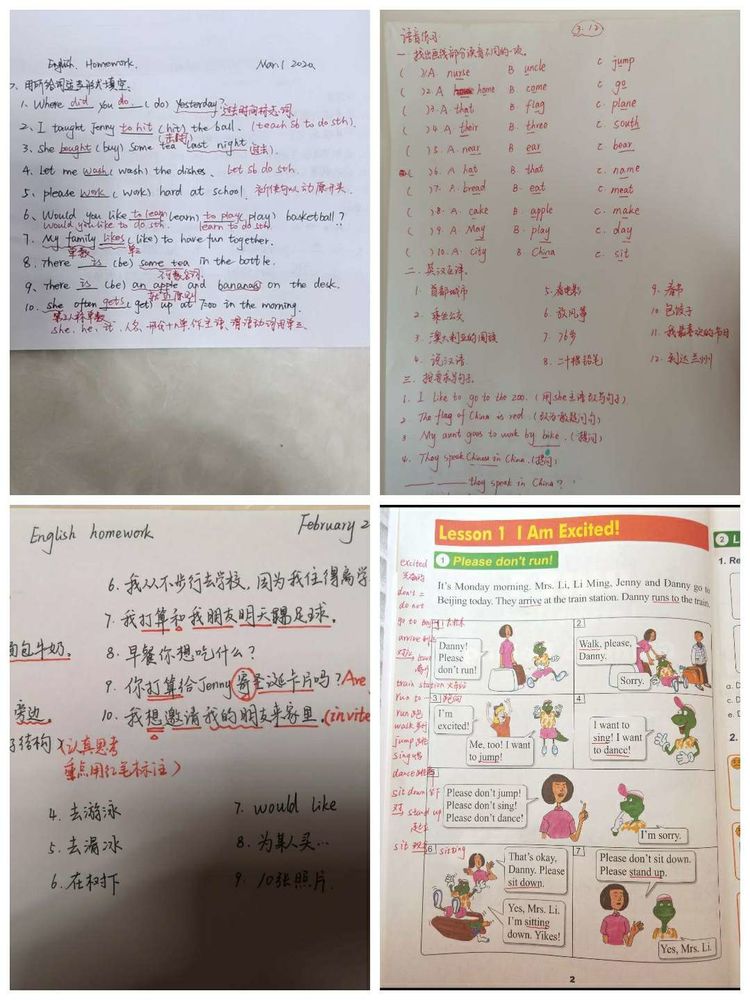 English Homework.
Mar.1 2020
2、用所给词适当形式填空:
1、Where did you do (do) yesterday? 过去时间标志词.
2、I taught Jenny to hit (hit) the ball. (teach sb to do sth).
3、she bought (buy) some tea last night (过去).
4、Let me wash (wash) the dishes. Let sb do sth.
5、please work (work) hard at school. 祈使句以动原开头.
6、Would you like to learn (learn) to play (play) basketball?
would you like to do sth. learn to do sth
7、My family likes (like) to have fun together.
单数 单三
8、There is (be) some tea in the bottle.
不可数名词
9、There is (be) an apple and bananas on the desk.
就近原则
10、she often gets (get) up at 7:00 in the morning.
第三人称单数
she、he、it、人名
3.12
语音练习
一、找出画线部分读音不同的一项。
( )1 A. nurse B. uncle C. jump
( )2 A home B. come C. go
( )3. A. that B. flag C. plane
( )4 A. their B. three C. south
( )5. A. near B. ear C. bear
( )6. A hat B. that C. name
( )7. A. bread B. eat C. meat
( )8. A. cake B. apple C. make
( )9. A. May B. play C. day
( )10. A. city B. China C. sit
二、英汉互译.
1. 首都城市 5. 看电影 9. 春节
2. 乘坐公交 6. 放风筝 10. 包饺子
3. 澳大利亚的国旗 7. 76步 11. 我最喜欢的节日
4. 说汉语 8. 二十根铅笔 12. 到达兰州
三、按要求写句子.
1. I like to go to the zoo. (用she主语改写句子)
2. The flag of China is red. (改为一般疑问句)
3 My aunt goes to work by bike. (提问)
4. They speak Chinese in China. (提问)
they speak in China?
English homework
February 2
6. 我从不步行去学校, 因为我住得离学
7. 我打算和我朋友明天踢足球.
面包牛奶.
8. 早餐你想吃什么?
9. 你打算给Jenny寄圣诞卡片吗? (Are
旁边
10. 我想邀请我的朋友来家里. (invite
结构) (认真思考
重点用红笔标注)
4. 去游泳 7. would like
5. 去滑冰 8. 为某人买…
6. 在树下 9. 10张照片.
Lesson 1 I Am Excited!
1 Please don't run!
It's Monday morning. Mrs. Li, Li Ming, Jenny and Danny go to
Beijing today. They arrive at the train station. Danny runs to the train.
excited
don't =
do not
go to
arrive
train station 火车站
run to
run 跑
walk
jump
sing 唱
dance
sit down
stand up
起立
sit
sitting
1
Danny!
Please
don't run!
2
Walk, please,
Danny.
Sorry.
3
I'm
excited!
Me, too! I want
to jump!
4
I want to
sing! I want
to dance!
5
Please don't jump!
Please don't sing!
Please don't dance!
I'm sorry.
6
That's okay,
Danny. Please
sit down.
Yes, Mrs. Li.
I'm sitting
down. Yikes!
7
Please don't sit down.
Please stand up.
Yes, Mrs. Li.
2
2 L
1. Re
a. D
e. D
2.